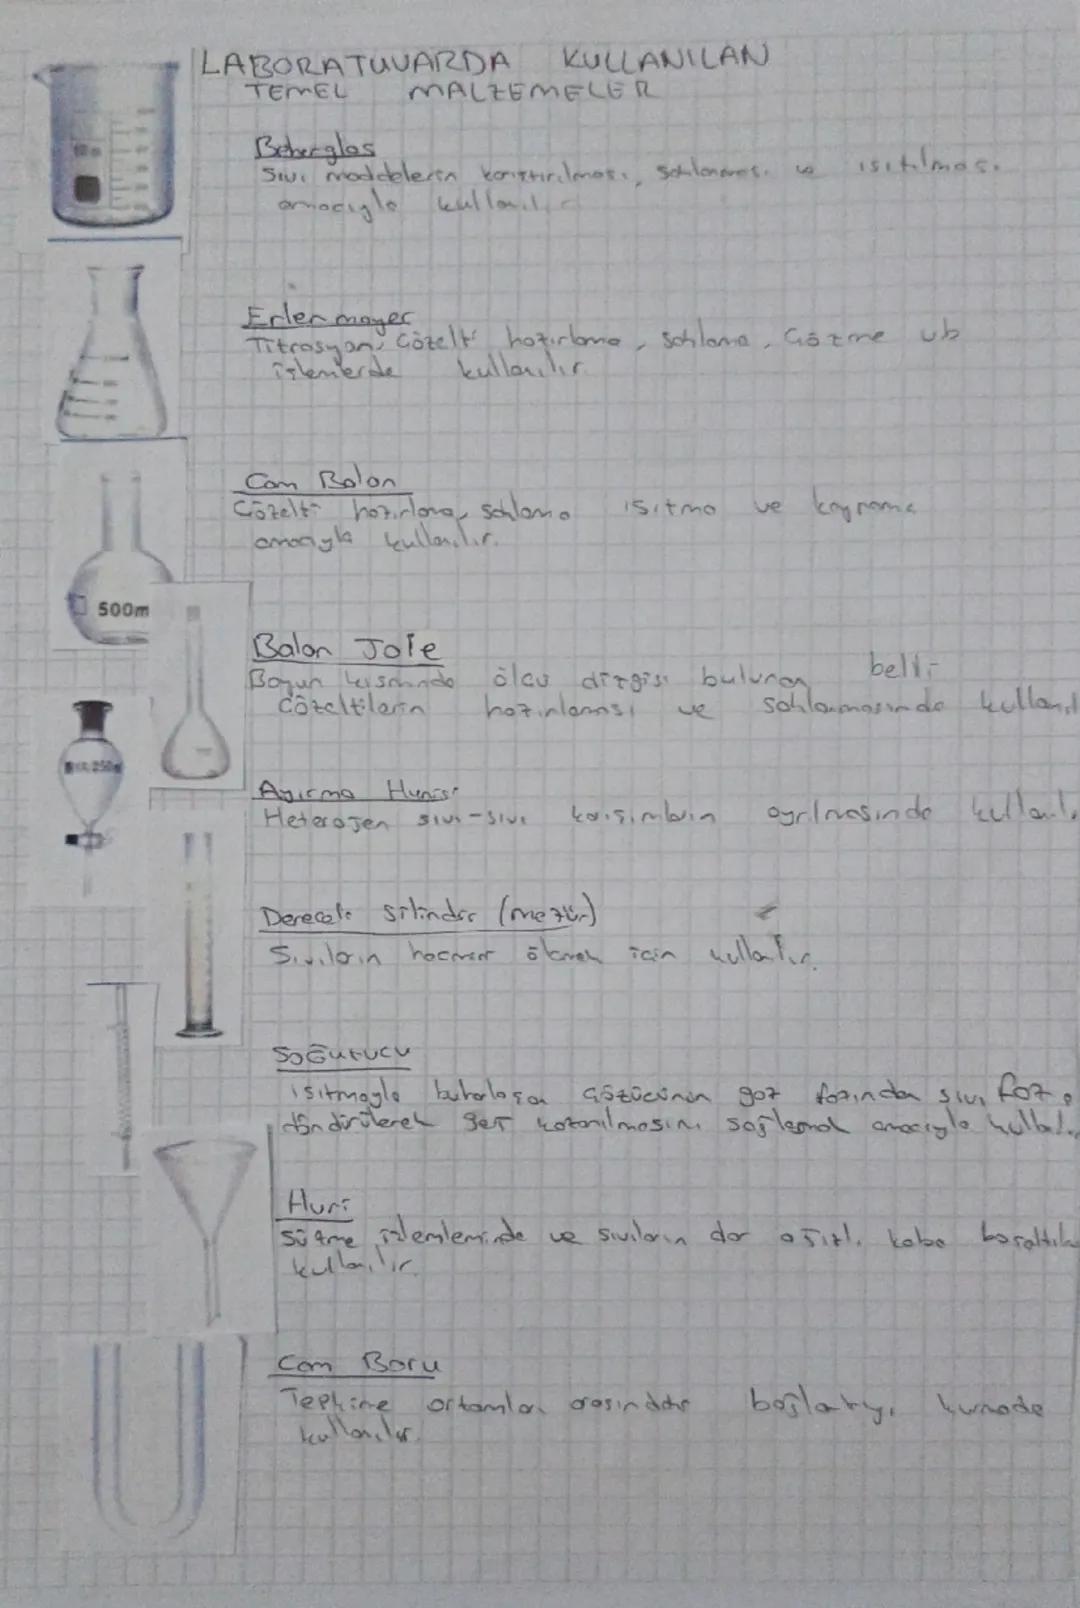 LABORATUVARDA KULLANILAN
TEMEL MALZEMELER
Beherglas
Sıvı maddelerin karıştırılması, saklanması ve ısıtılması
amacıyla kullanılır
Erlenmayer
Titrasyon, Çözelti hazırlama, saklama, Çözme vb
işlemlerde kullanılır.
Cam Balon
Çözelti hazırlama, saklama ısıtma ve kaynama
amacıyla kullanılır.
500m
Balon Joje
Boyun kısmında ölçü çizgisi bulunan belli
Çözeltilerin hazırlanması ve saklanmasında kullanıl
250
Ayırma Hunisi
Heterojen sıvı-sıvı karışımların ayrılmasında kullanılı
Dereceli silindir (mezür)
Sıvıların hacmini ölçmek için kullanılır.
SoĞutucu
ısıtmayla buharlaşan çözücünün gaz fazından sıvı faza
döndürülerek geri kazanılmasını sağlamak amacıyla kullanıl
Huni
Süzme işlemlerinde ve sıvıların dar ağızlı kaba
kullanılır.
Cam Boru
Tepkime ortamları arasındaki bağlantıyı kurmada
kullanılır.